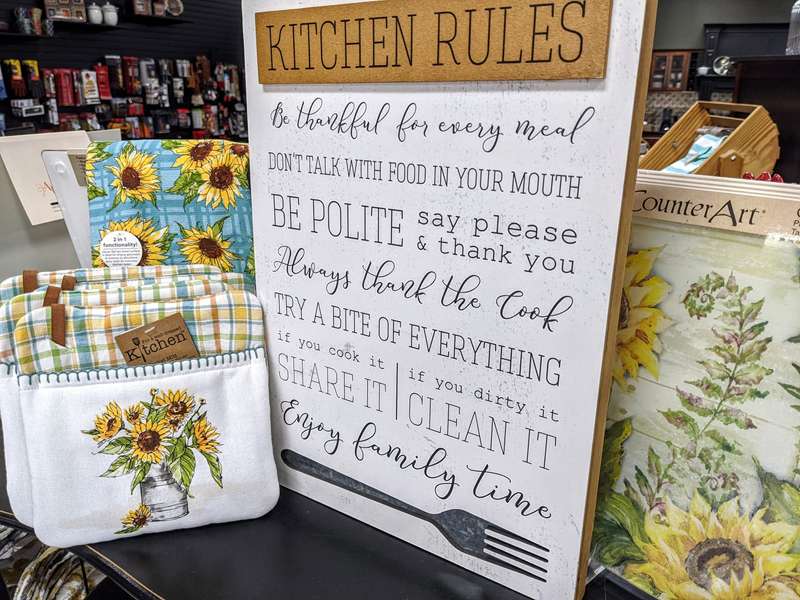 KITCHEN RULES
Be thankful for every meal
DON'T TALK WITH FOOD IN YOUR MOUTH
BE POLITE say please
& thank you
Always thank the Cook
TRY A BITE OF EVERYTHING
if you cook it
SHARE IT
if you dirty it
CLEAN IT
Enjoy family time
2 in 1
functionality!
Kitchen
CounterArt